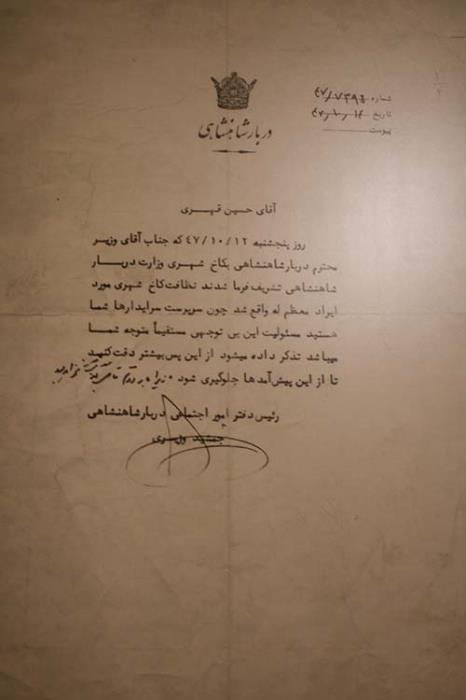 دربار شاهنشاهی
شماره
تاریخ
پیوست
آقای حسین قهری
روز پنجشنبه ۴۷/۱۰/۱۲ که جناب آقای وزیر
محترم دربار شاهنشاهی بکاخ شهری وزارت دربار
شاهنشاهی تشریف فرما شدند نظافت کاخ شهری مورد
ایراد معظم له واقع شد چون سرپرست سرایدارها شما
هستید مسئولیت این بی توجهی مستقیماً متوجه شما
میباشد تذکر داده میشود از این پس بیشتر دقت کنید
تا از این پیش آمدها جلوگیری شود
رئیس دفتر امور اجتماعی دربار شاهنشاهی
جمشید